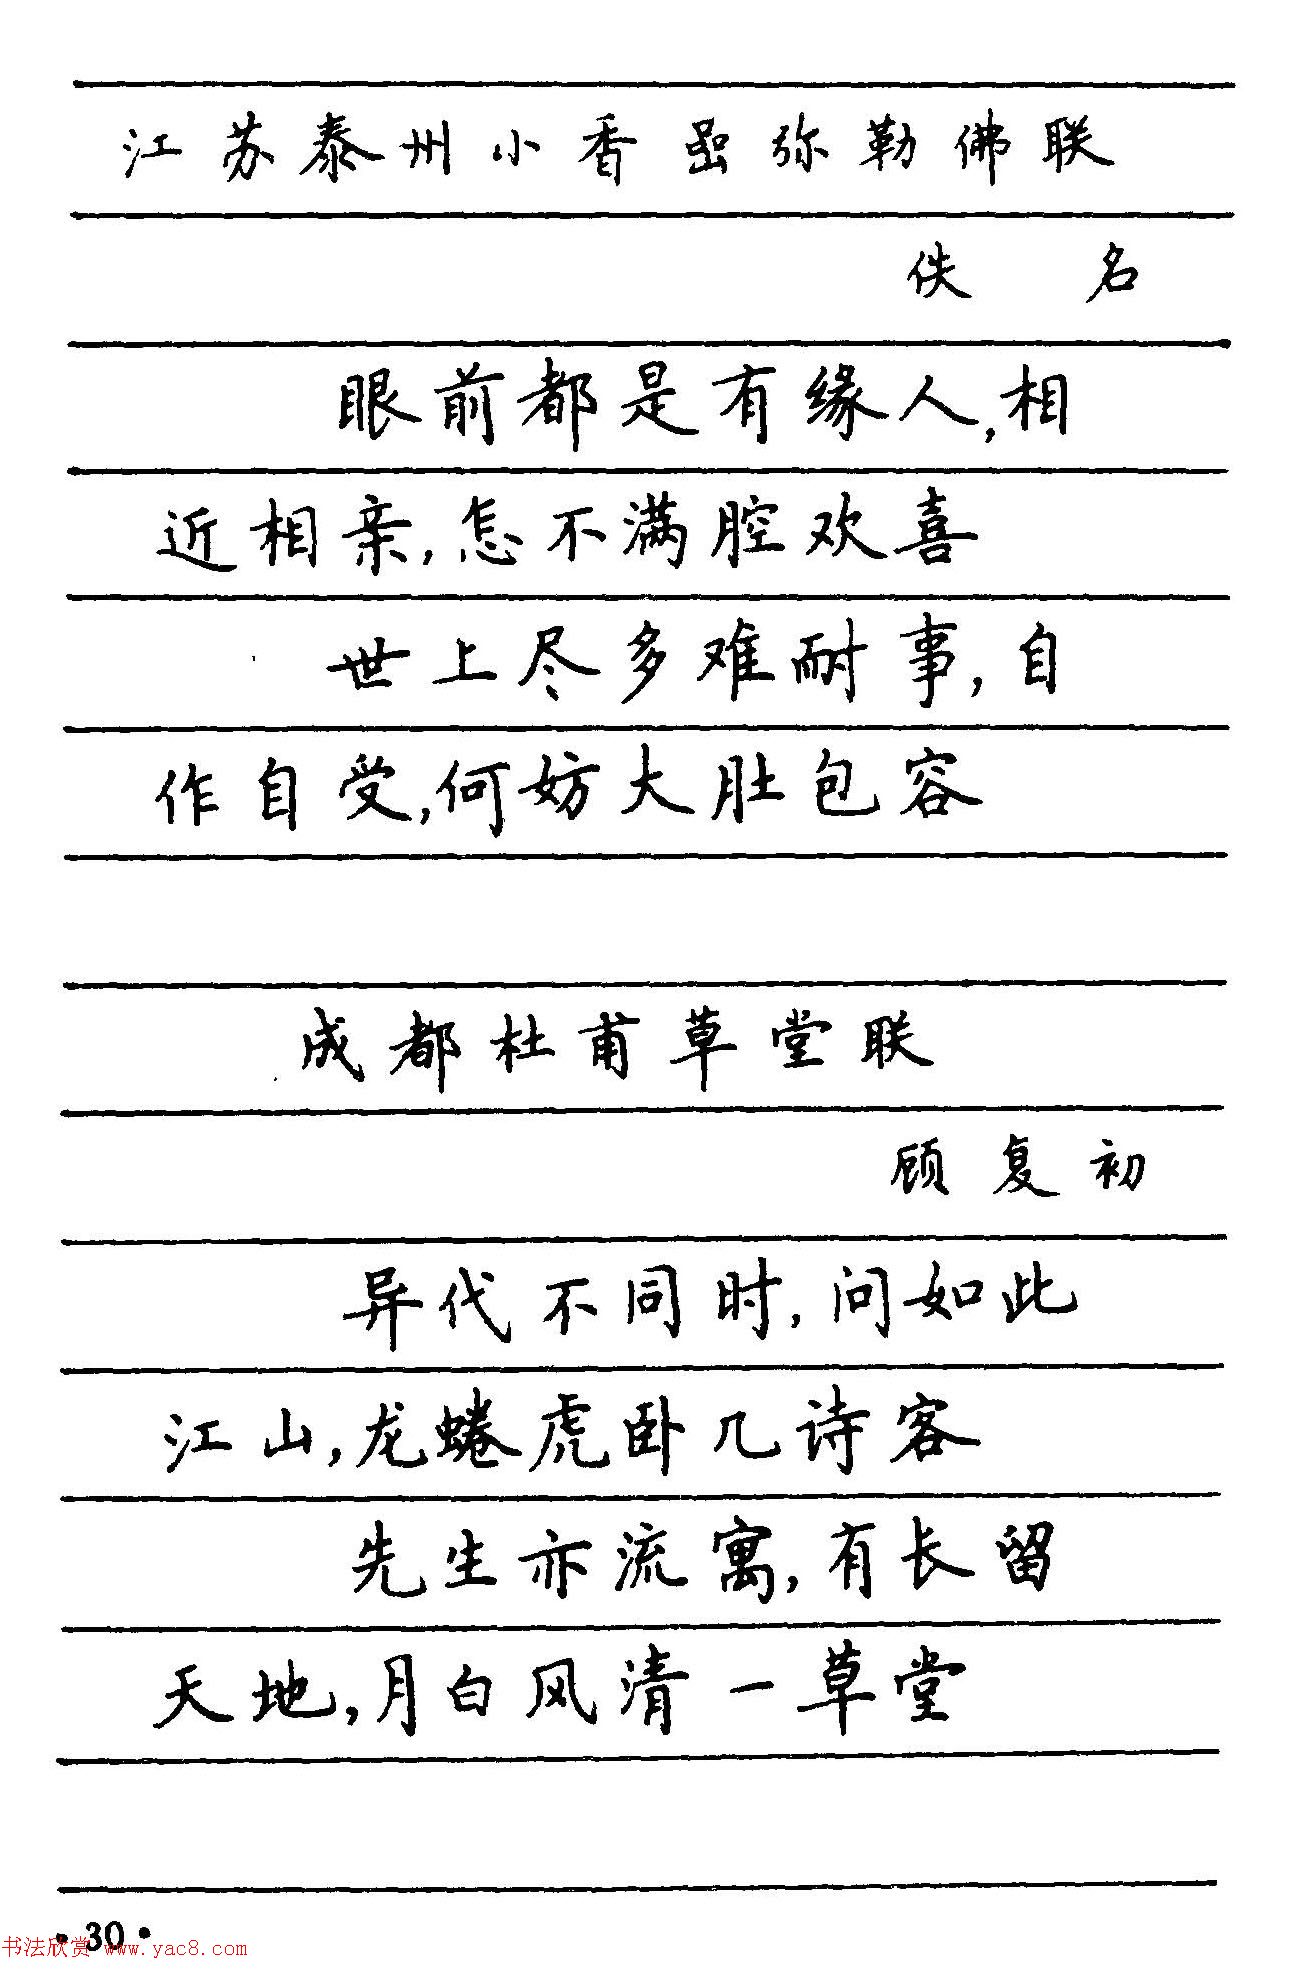 江苏泰州小香嵒弥勒佛联
佚名
眼前都是有缘人,相
近相亲,怎不满腔欢喜
世上尽多难耐事,自
作自受,何妨大肚包容
成都杜甫草堂联
顾复初
异代不同时,问如此
江山,龙蜷虎卧几诗客
先生亦流寓,有长留
天地,月白风清一草堂
·30·
书法欣赏 www.yac8.com